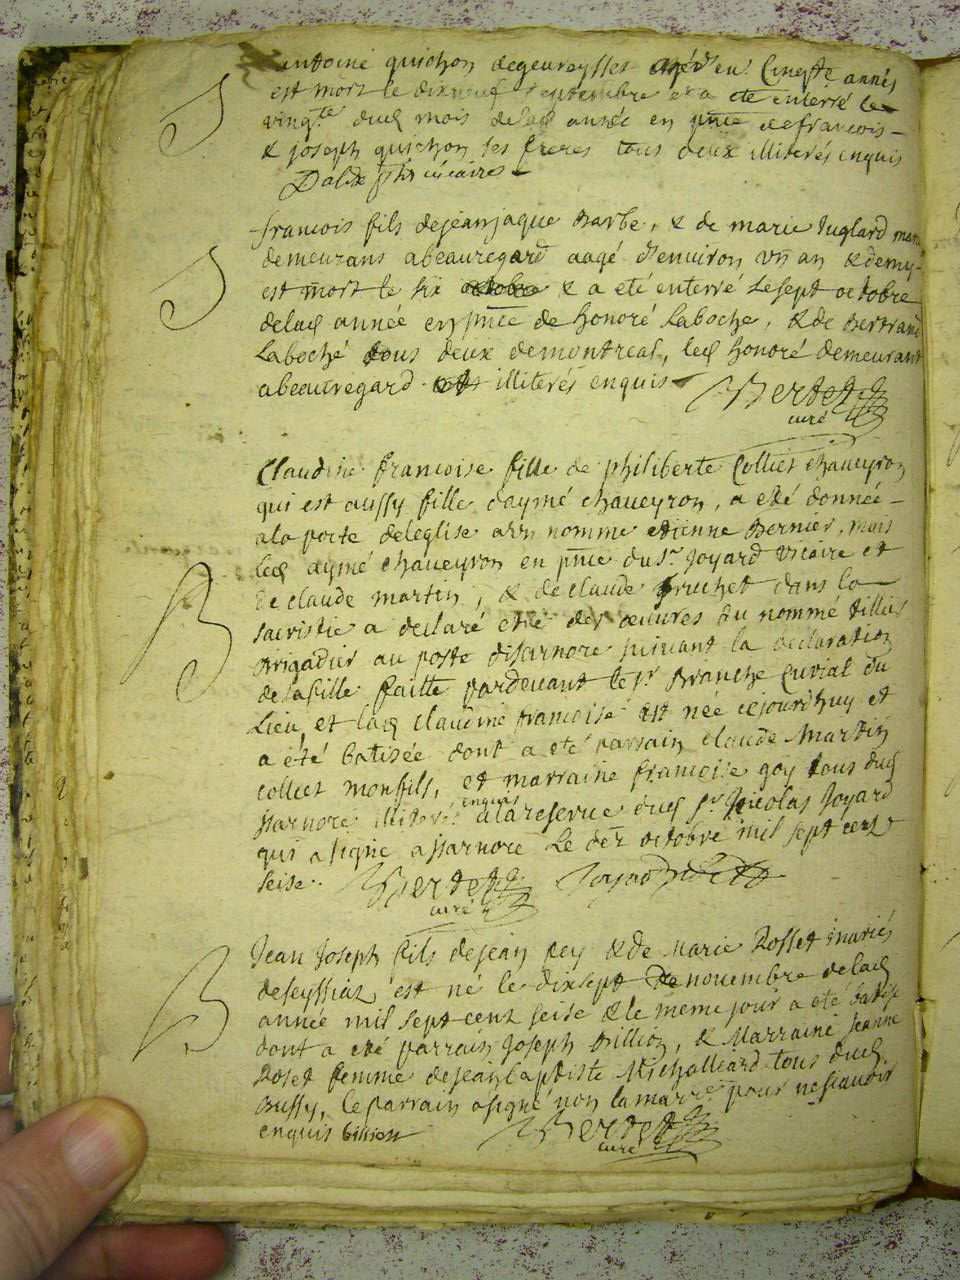 antoine quichon degeureysset agé d'en. Cinqte années
est mort le dixneuf septembre et a eté enterré le
vingte dud mois delad année en pnce defrancois
& joseph quichon ses freres tous deux illiterés enquis
S
francois fils dejeanjaque Barbe, & de marie Juglard mari
demeurans abeauregard aagé d'enuiron vn an & demy
est mort le six octobre & a eté enterré le sept octobre
delad année en pnce de honoré Laboche, & de Bertrand
Laboché tous deux demontreal, led honoré demeurant
abeauregard illiterés enquis
S
Berdet
curé
Claudine francoise fille de philiberte Collier chaueyron
qui est aussy fille daymé chaueyron, a eté donnée
ala porte deleglise a un nommé etienne Bernier, mais
led aymé chaueyron en pnce du Sr Joyard vicaire et
de claude martin, & de claude fruchet dans la
sacristie a declaré etre des œuures du nommé tillier
Brigadier au poste disarnore suiuant la declaration
delafille faitte pardeuant le sr Branche Curial du
Lieu, et lad claudine francoise est née cejourdhuy et
a eté batisée dont a eté parrain claude Martin
collier monfils, et marraine francoise goy tous dud
Isarnore illiterés enquis alareserue dud Sr Nicolas Joyard
qui a signé a Isarnore Le der octobre mil sept cent
seise.
B
Berdet Joyard
curé
Jean Joseph fils dejean rey & de Marie Rosset mariés
deseyssiaz est né le dixsept de nouembre delad
année mil sept cent seise & le meme jour a eté batisé
dont a eté parrain Joseph Billion, & Marraine Jeanne
Roset femme dejean baptiste Michalliard tous dud
Bussy, le parrain a signé non la marre pour ne scauoir
enquis billion
B
Berdet
curé